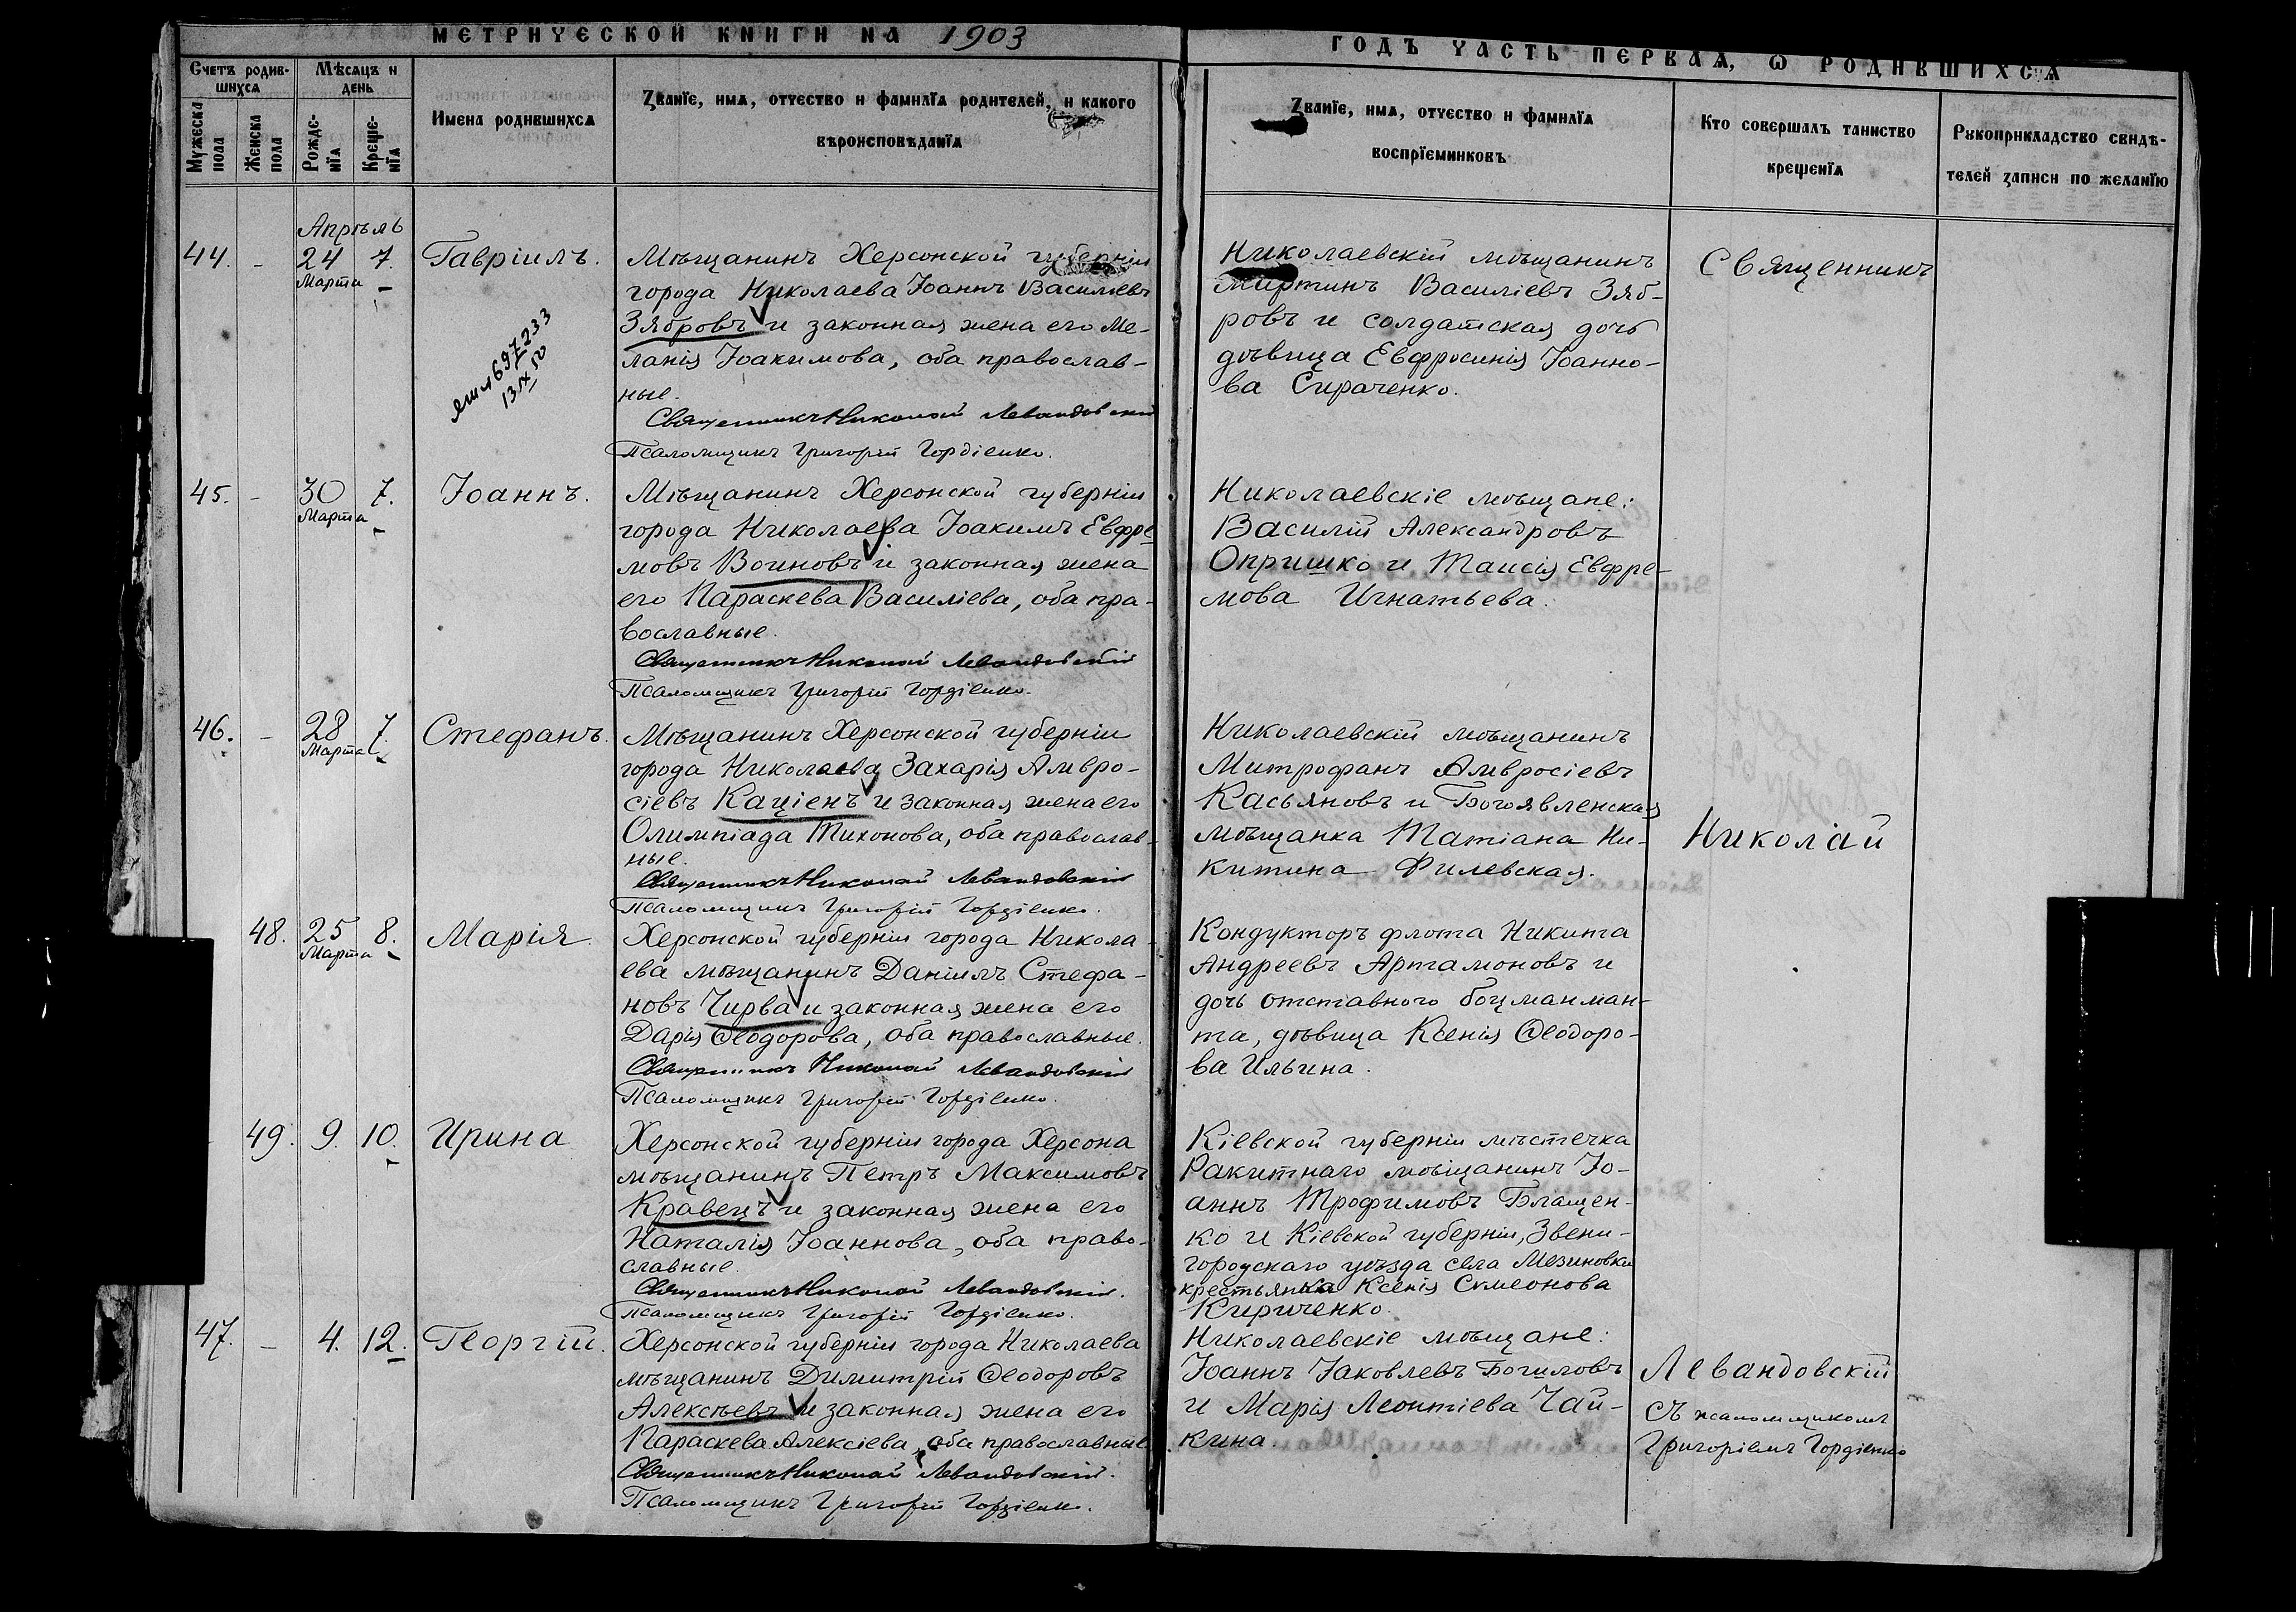 МЕТРИЧЕСКОЙ КНИГИ НА 1903
Счетъ родив-
шихся
Мѣсяцъ и
день
Мужеска
пола
Женска
пола
Рожде-
нія
Креще-
нія
Имена родившихся
Званіе, имя, отчество и фамилія родителей, и какого
вѣроисповѣданія
Апрѣль
44. - 24 7. Гавріилъ.
Марта
Мѣщанинъ Херсонской губерніи
города Николаева Іоаннъ Василіевъ
Зябровъ и законная жена его Ме-
ланія Іоакимова, оба православ-
ные.
Священникъ Николай Левандовскій
Псаломщикъ Григорій Гордіенко.
45. - 30 7. Іоаннъ.
Марта
Мѣщанинъ Херсонской губерніи
города Николаева Іоакимъ Евфре-
мовъ Воиновъ и законная жена
его Параскева Василіева, оба пра-
вославные.
Священникъ Николай Левандовскій
Псаломщикъ Григорій Гордіенко.
46. - 28 7. Стефанъ.
Марта
Мѣщанинъ Херсонской губерніи
города Николаева Захарія Амвро-
сіевъ Каціенъ и законная жена его
Олимпіада Тихонова, оба православ-
ные.
Священникъ Николай Левандовскій
Псаломщикъ Григорій Гордіенко.
48. 25 8. Марія.
Марта
Херсонской губерніи города Никола-
ева мѣщанинъ Даніилъ Стефа-
новъ Чирва и законная жена его
Дарія Ѳеодорова, оба православные.
Священникъ Николай Левандовскій
Псаломщикъ Григорій Гордіенко.
49. 9. 10. Ирина
Херсонской губерніи города Херсона
мѣщанинъ Петръ Максимовъ
Кравецъ и законная жена его
Наталія Іоаннова, оба право-
славные.
Священникъ Николай Левандовскій.
Псаломщикъ Григорій Гордіенко.
47. - 4. 12. Георгій.
Херсонской губерніи города Николаева
мѣщанинъ Димитрій Ѳеодоровъ
Алексѣевъ и законная жена его
Параскева Алексіева, оба православные.
Священникъ Николай Левандовскій.
Псаломщикъ Григорій Гордіенко.
ГОДЪ ЧАСТЬ ПЕРВАЯ, Ѡ РОДИВШИХСЯ
Званіе, имя, отчество и фамилія
воспріемниковъ
Кто совершалъ таинство
крещенія
Рукоприкладство свидѣ-
телей записи по желанію
Николаевскій мѣщанинъ
Мартинъ Василіевъ Зяб-
ровъ и солдатская дочь
дѣвица Евфросинія Іоанно-
ва Сираченко.
Николаевскіе мѣщане:
Василій Александровъ
Опришко и Таисія Евфре-
мова Игнатьева.
Николаевскій мѣщанинъ
Митрофанъ Амвросіевъ
Касьяновъ и Богоявленская
мѣщанка Татіана Ни-
китина Филевская.
Кондукторъ флота Никита
Андреевъ Артамоновъ и
дочь отставного боцманман-
та, дѣвица Ксенія Ѳеодоро-
ва Ильина.
Кіевской губерніи мѣстечка
Ракитнаго мѣщанинъ Іо-
аннъ Трофимовъ Блащен-
ко и Кіевской губерніи, Звени-
городскаго уѣзда села Мезиновки
крестьянка Ксенія Симеонова
Кириченко.
Николаевскіе мѣщане:
Іоаннъ Іаковлевъ Богиловъ
и Марія Леонтіева Чай-
кина.
Священникъ
Николай
Левандовскій
съ псаломщикомъ
Григоріемъ Гордіенко